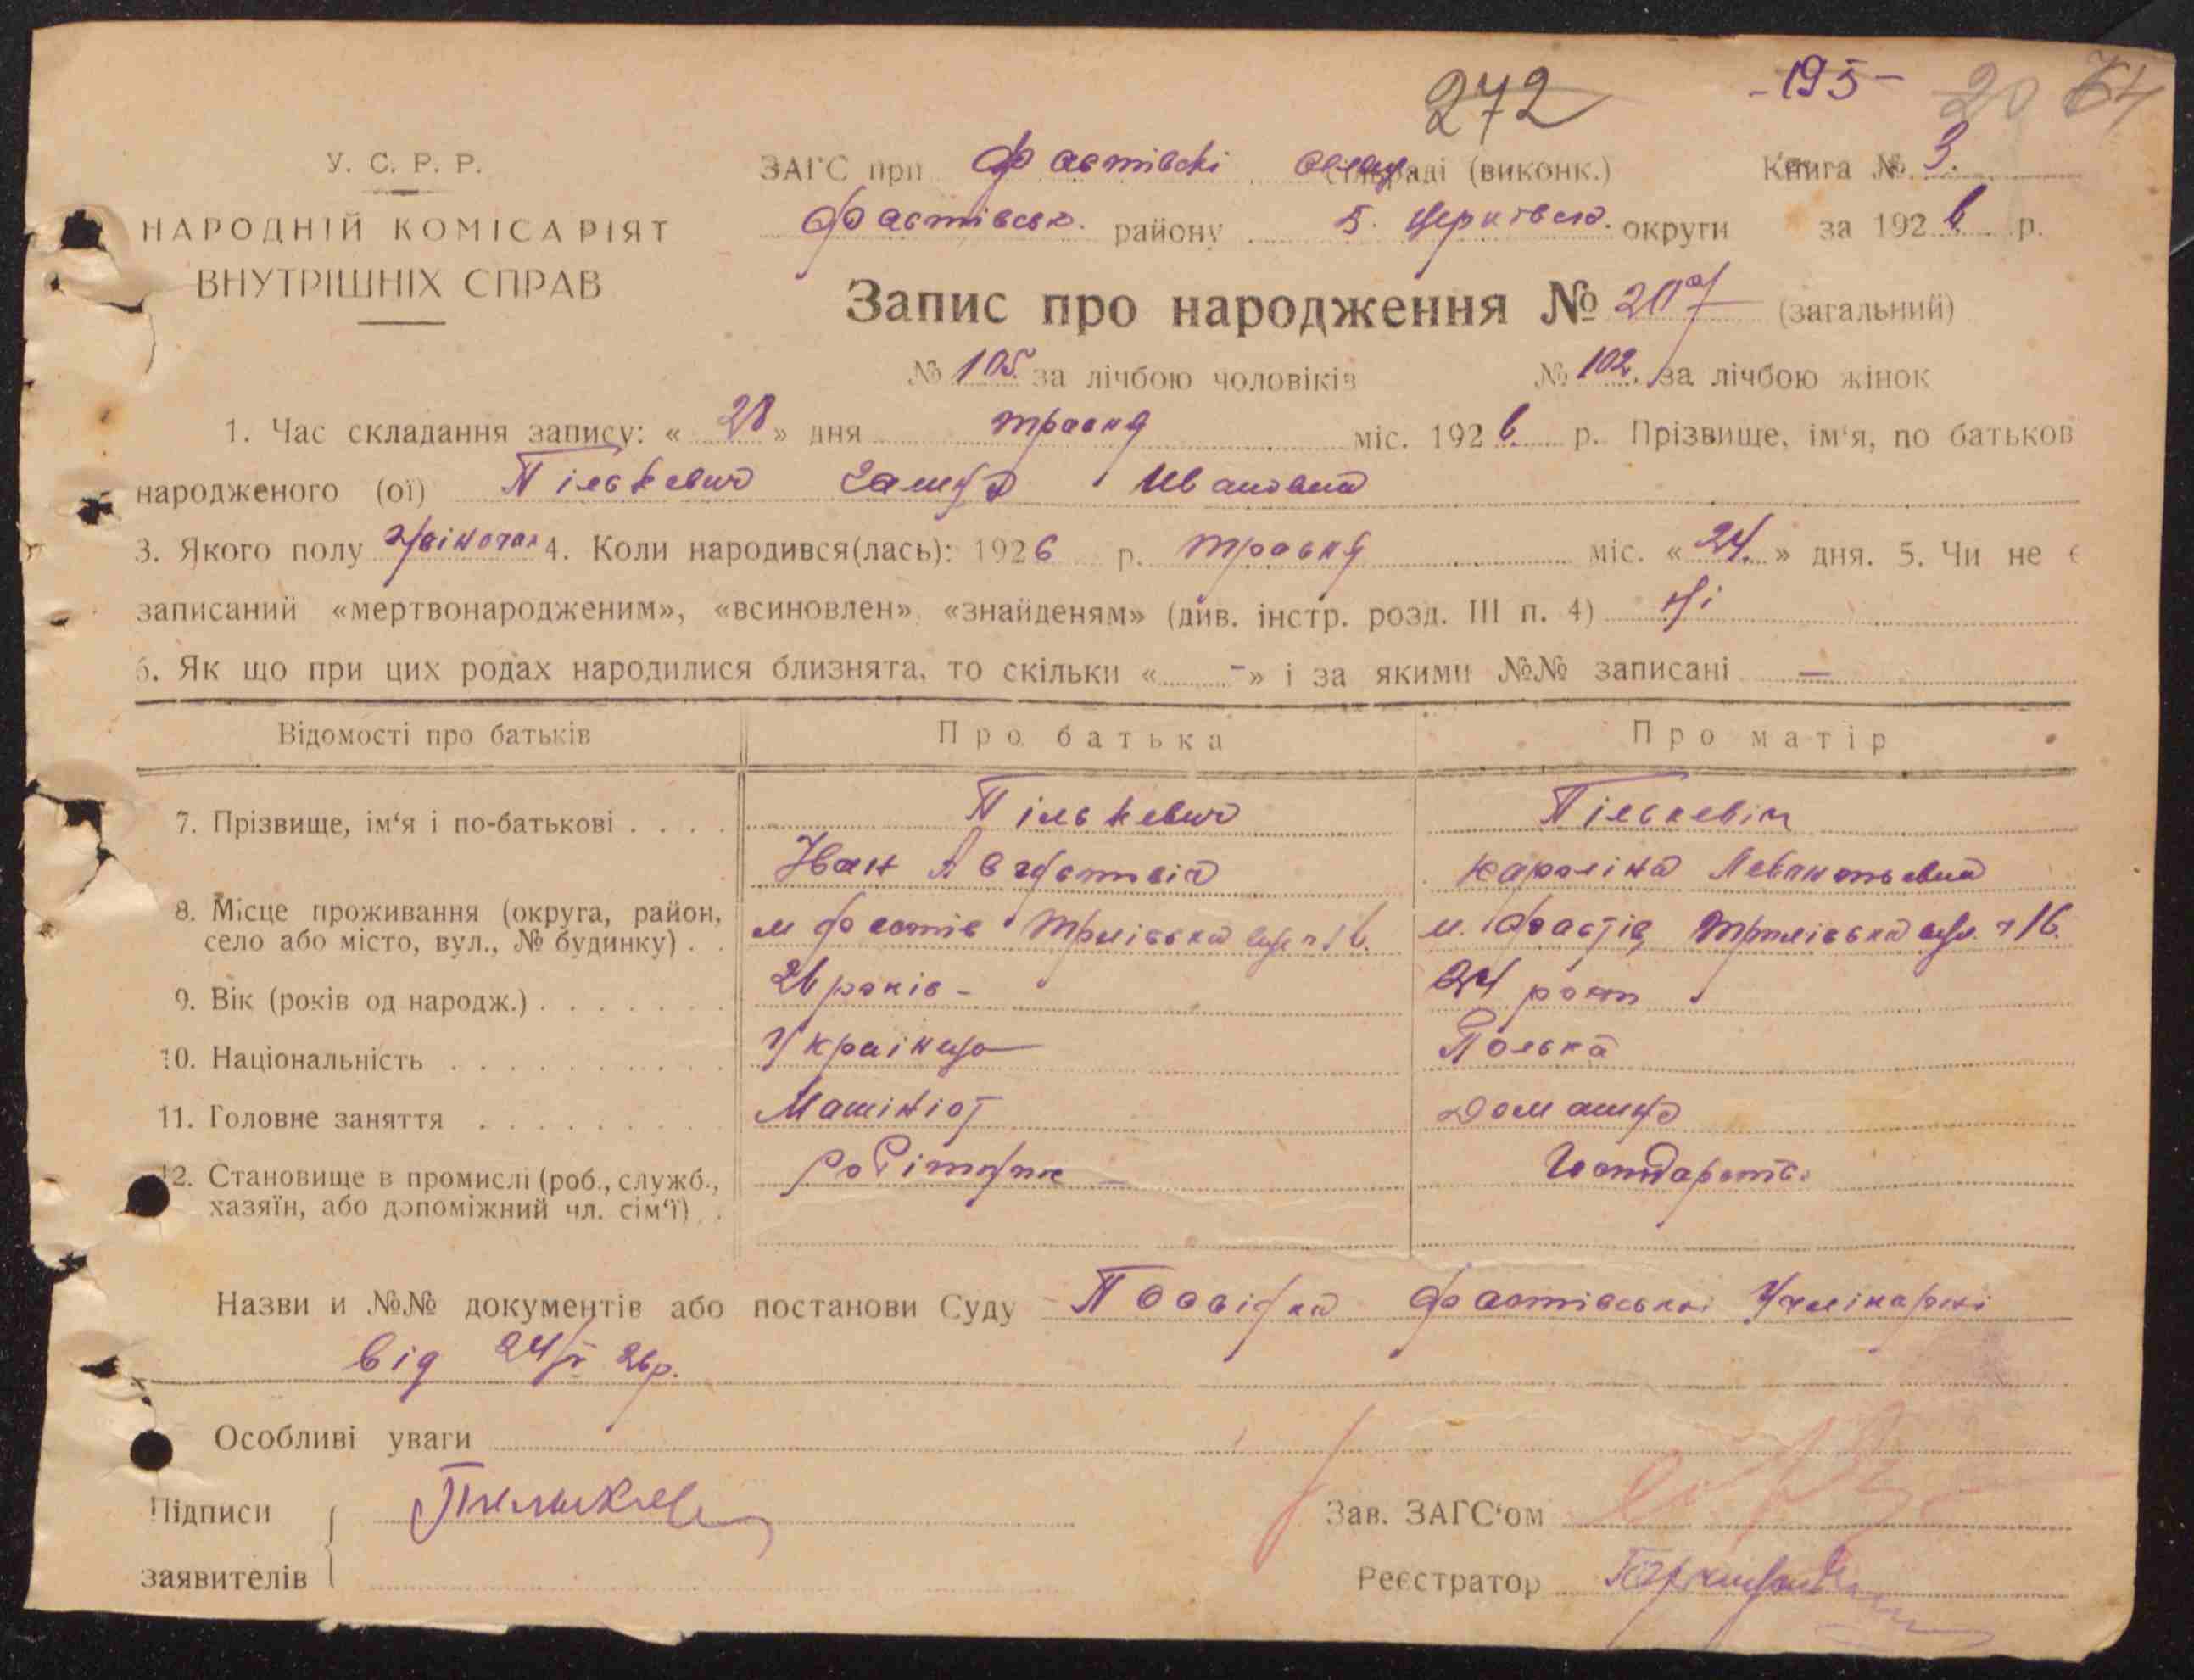 272 -195- 20 64
У. С. Р. Р. ЗАГС при Фастівскі раді (виконк.) Книга № 3.
НАРОДНІЙ КОМІСАРІЯТ Фастівськ. району Б. Церківськ. округи за 1926 р.
ВНУТРІШНІХ СПРАВ
Запис про народження № 207 (загальний)
№ 105. за лічбою чоловіків № 102. за лічбою жінок
1. Час складання запису: « 28 » дня травня міс. 1926. р. Прізвище, ім‘я, по батьков
народженого (ої) Пількевич Ивановна
3. Якого полу жіночал 4. Коли народився(лась): 1926 р. травня міс. « 24. » дня. 5. Чи не є
записаний «мертвонародженим», «всиновлен» «знайденям» (див. інстр. розд. III п. 4) Ні
6. Як що при цих родах народилися близнята, то скільки « - » і за якими №№ записані —
Відомості про батьків Про батька Про матір
7. Прізвище, ім‘я і по-батькові . . . . Пількевич Пількевіч
Іван Августовіч Кароліна
8. Місце проживання (округа, район, село або місто, вул., № будинку) . . м Фастів вул ч 16. м. Фастів, вул. ч 16.
9. Вік (років од народж.) . . . . . . . 26 років - 24 роки
10. Національність . . . . . . . . . . Українец Полька
11. Головне заняття . . . . . . . . . Машініст Домашнє
12. Становище в промислі (роб., служб., хазяїн, або допоміжний чл. сім‘ї) . . Робітнік — Господарство
Назви и №№ документів або постанови Суду Посвідка Фастівської
від 24/V 26р.
Особливі уваги
Підписи Пилькевич Зав. ЗАГС‘ом
заявителів Реєстратор